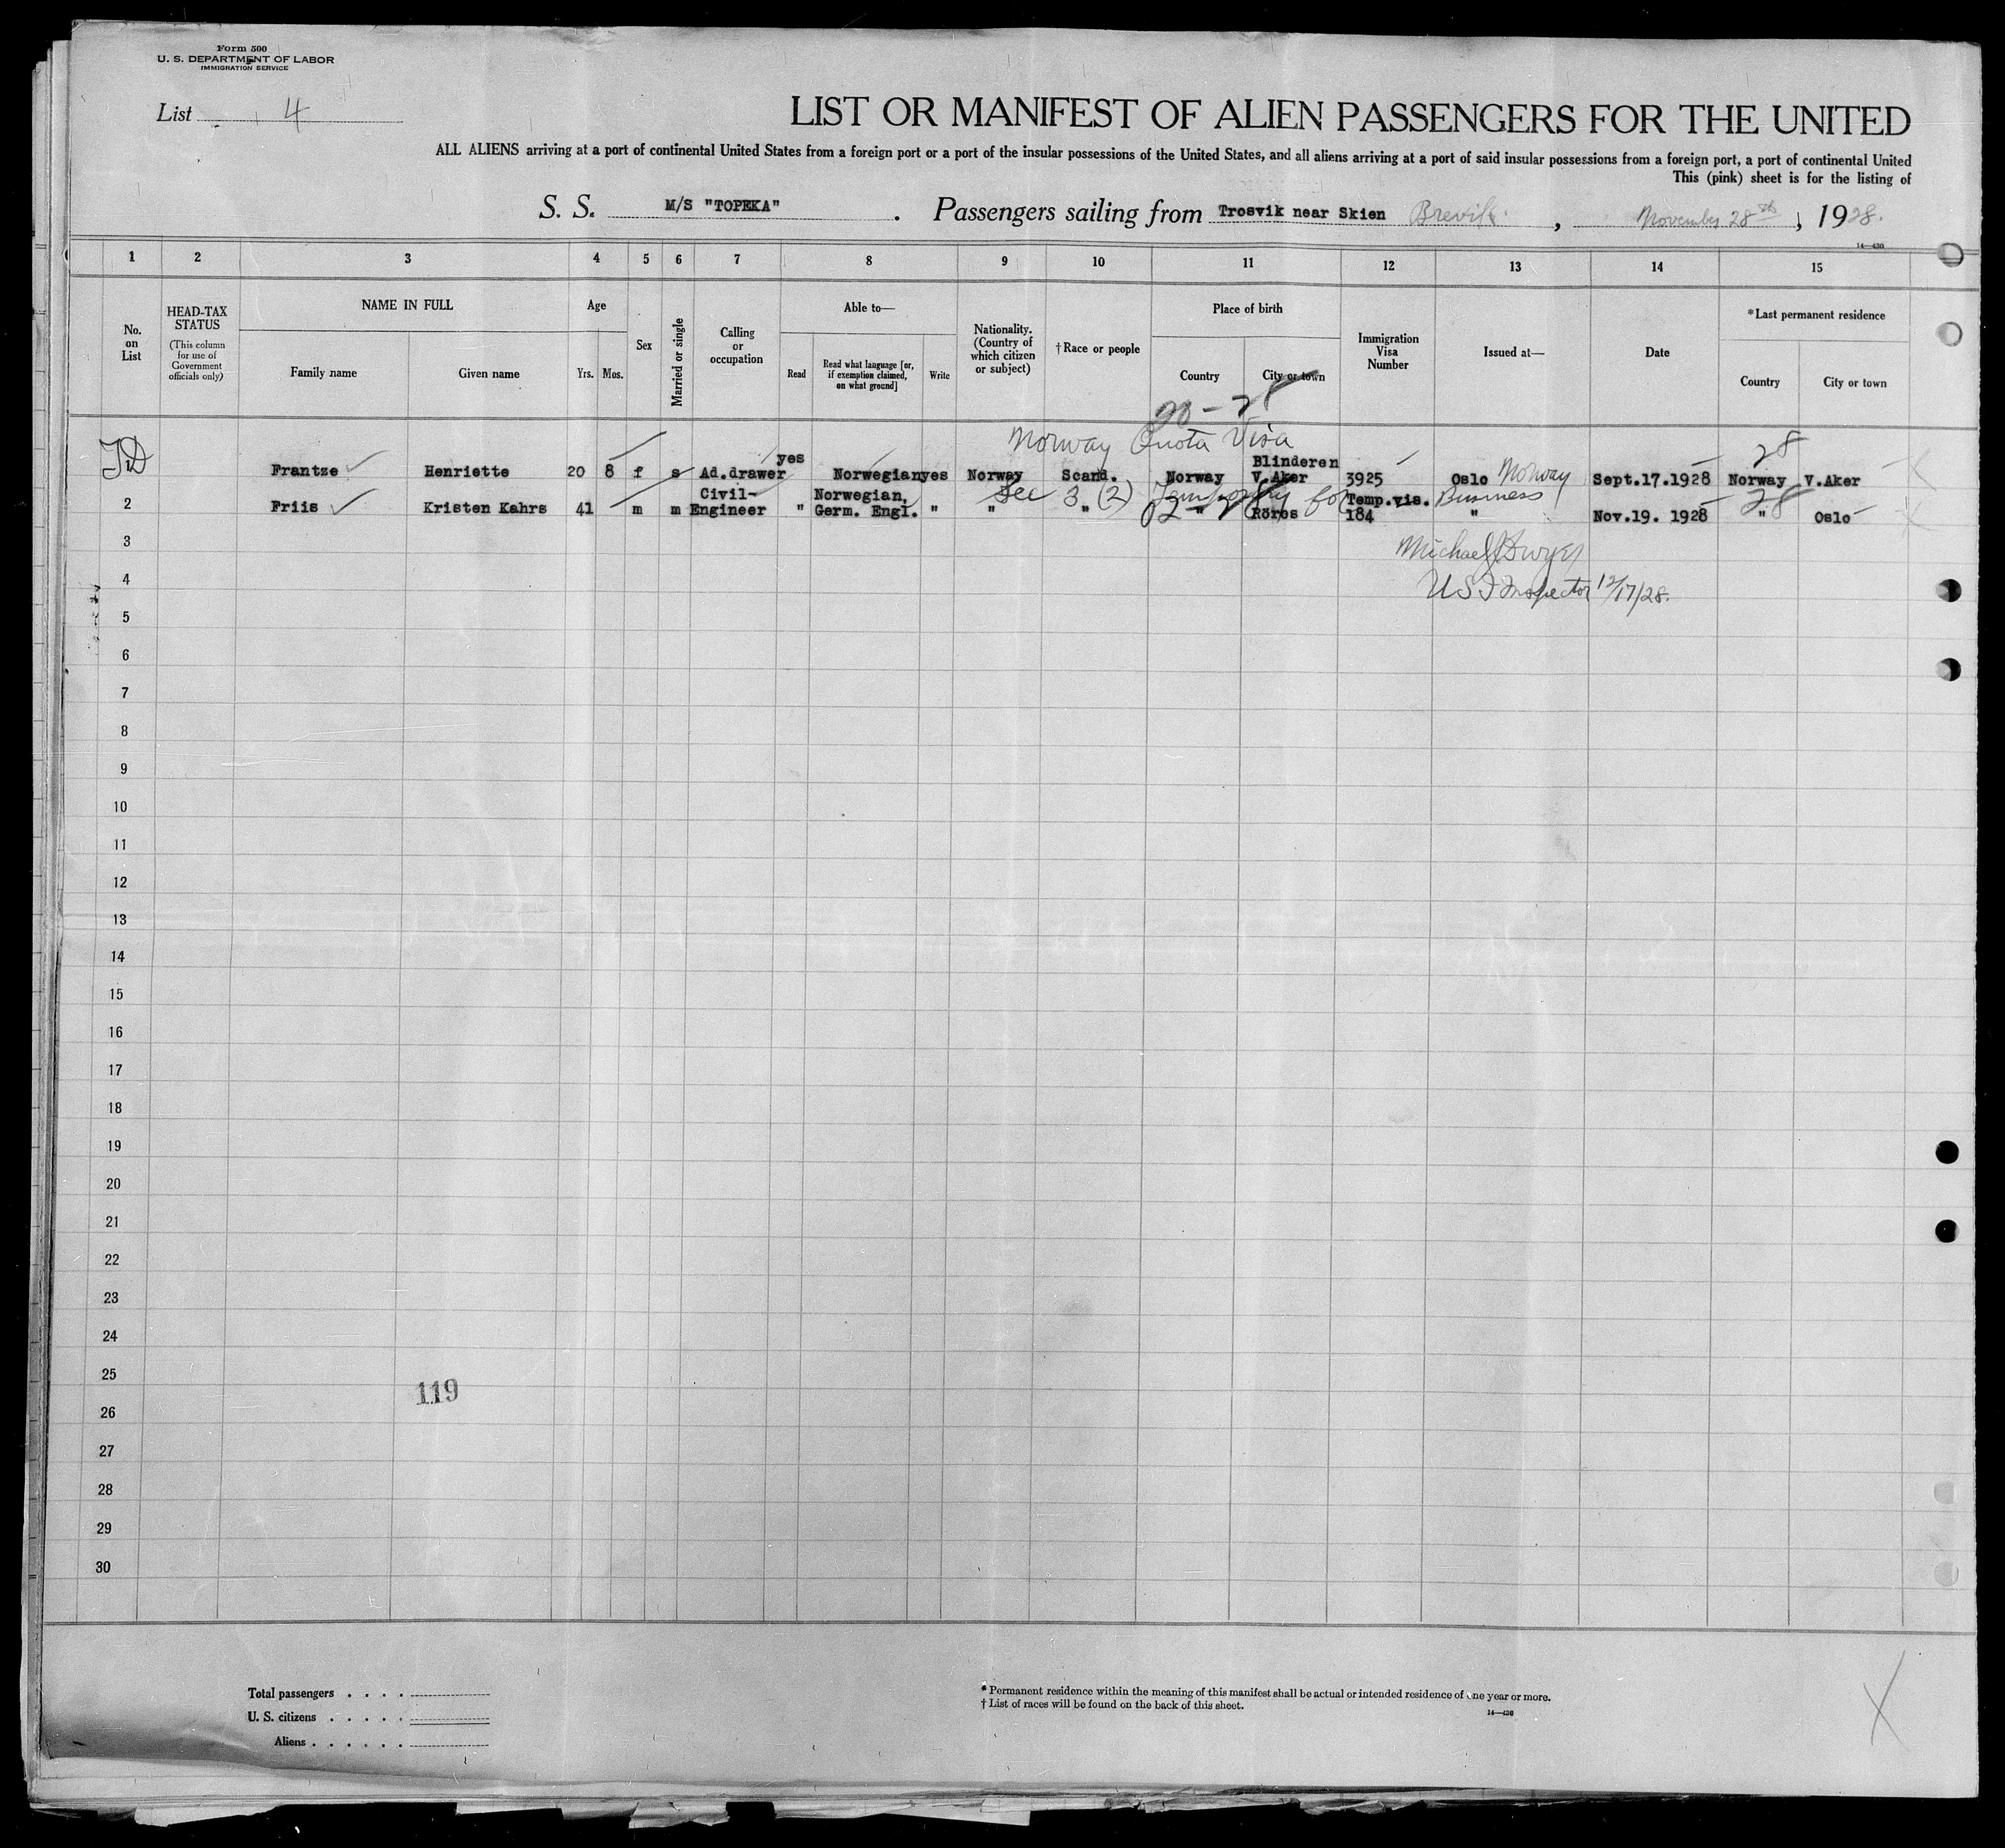 Form 500
U. S. DEPARTMENT OF LABOR
IMMIGRATION SERVICE
List 4
LIST OR MANIFEST OF ALIEN PASSENGERS FOR THE UNITED
ALL ALIENS arriving at a port of continental United States from a foreign port or a port of the insular possessions of the United States, and all aliens arriving at a port of said insular possessions from a foreign port, a port of continental United
This (pink) sheet is for the listing of
S. S. M/S "TOPEKA" . Passengers sailing from Trosvik near Skien Brevik , November 28th , 1928.
14—430
1 2 3 4 5 6 7 8 9 10 11 12 13 14 15
No. on List
HEAD-TAX STATUS (This column for use of Government officials only)
NAME IN FULL
Family name Given name
Age
Yrs. Mos.
Sex
Married or single
Calling or occupation
Able to—
Read Read what language [or, if exemption claimed, on what ground] Write
Nationality. (Country of which citizen or subject)
†Race or people
Place of birth
Country City or town
Immigration Visa Number
Issued at—
Date
*Last permanent residence
Country City or town
20 - 28
Norway Quota Visa
28
yes Blinderen
Frantze Henriette 20 8 f s Ad.drawer Norwegian yes Norway Scand. Norway V.Aker 3925 Oslo Norway Sept.17.1928 Norway V.Aker
Sec 3 (2) Temporary for Business
Civil- Norwegian, Temp.vis. 28
2 Friis Kristen Kahrs 41 m m Engineer " Germ. Engl. " " " " Röros 184 " Nov.19. 1928 " Oslo
3
Michael J. Dwyer
4
U S I Inspector 12/17/28.
5
6
7
8
9
10
11
12
13
14
15
16
17
18
19
20
21
22
23
24
25
119
26
27
28
29
30
Total passengers . . . .
U. S. citizens . . . . .
Aliens . . . . . .
* Permanent residence within the meaning of this manifest shall be actual or intended residence of one year or more.
† List of races will be found on the back of this sheet.
14—430
X